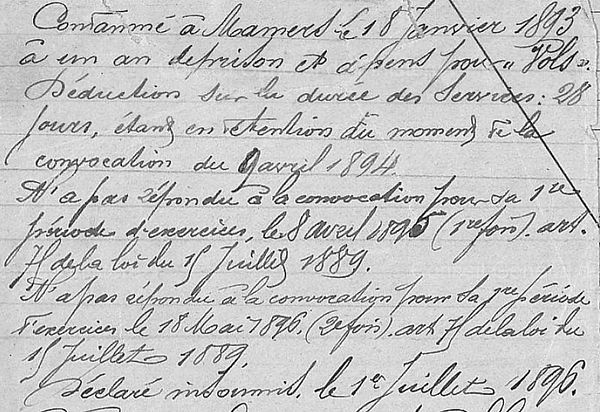 Condamné à Mamers le 18 Janvier 1893
à un an de prison et dépens pour « Vols ».
Déduction sur la durée des Services : 28
jours, étant en détention du moment de la
convocation du 9 avril 1894.
N'a pas répondu à la convocation pour sa 1re
période d'exercices, le 8 avril 1895 (1re fois). art.
75 de la loi du 15 Juillet 1889.
N'a pas répondu à la convocation pour sa 1re période
d'exercices le 18 Mai 1896. (2e fois). art 75 de la loi du
15 Juillet 1889.
Déclaré insoumis. le 1er Juillet 1896.